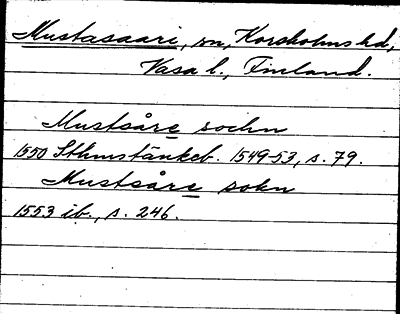 Mustasaari, sn, Korsholms hd,
Vasa l., Finland.
Mustsåre sochn
1550 Sthmstänkeb. 1549-53, s. 79.
Mustsåre sokn
1553 ib., s. 246.